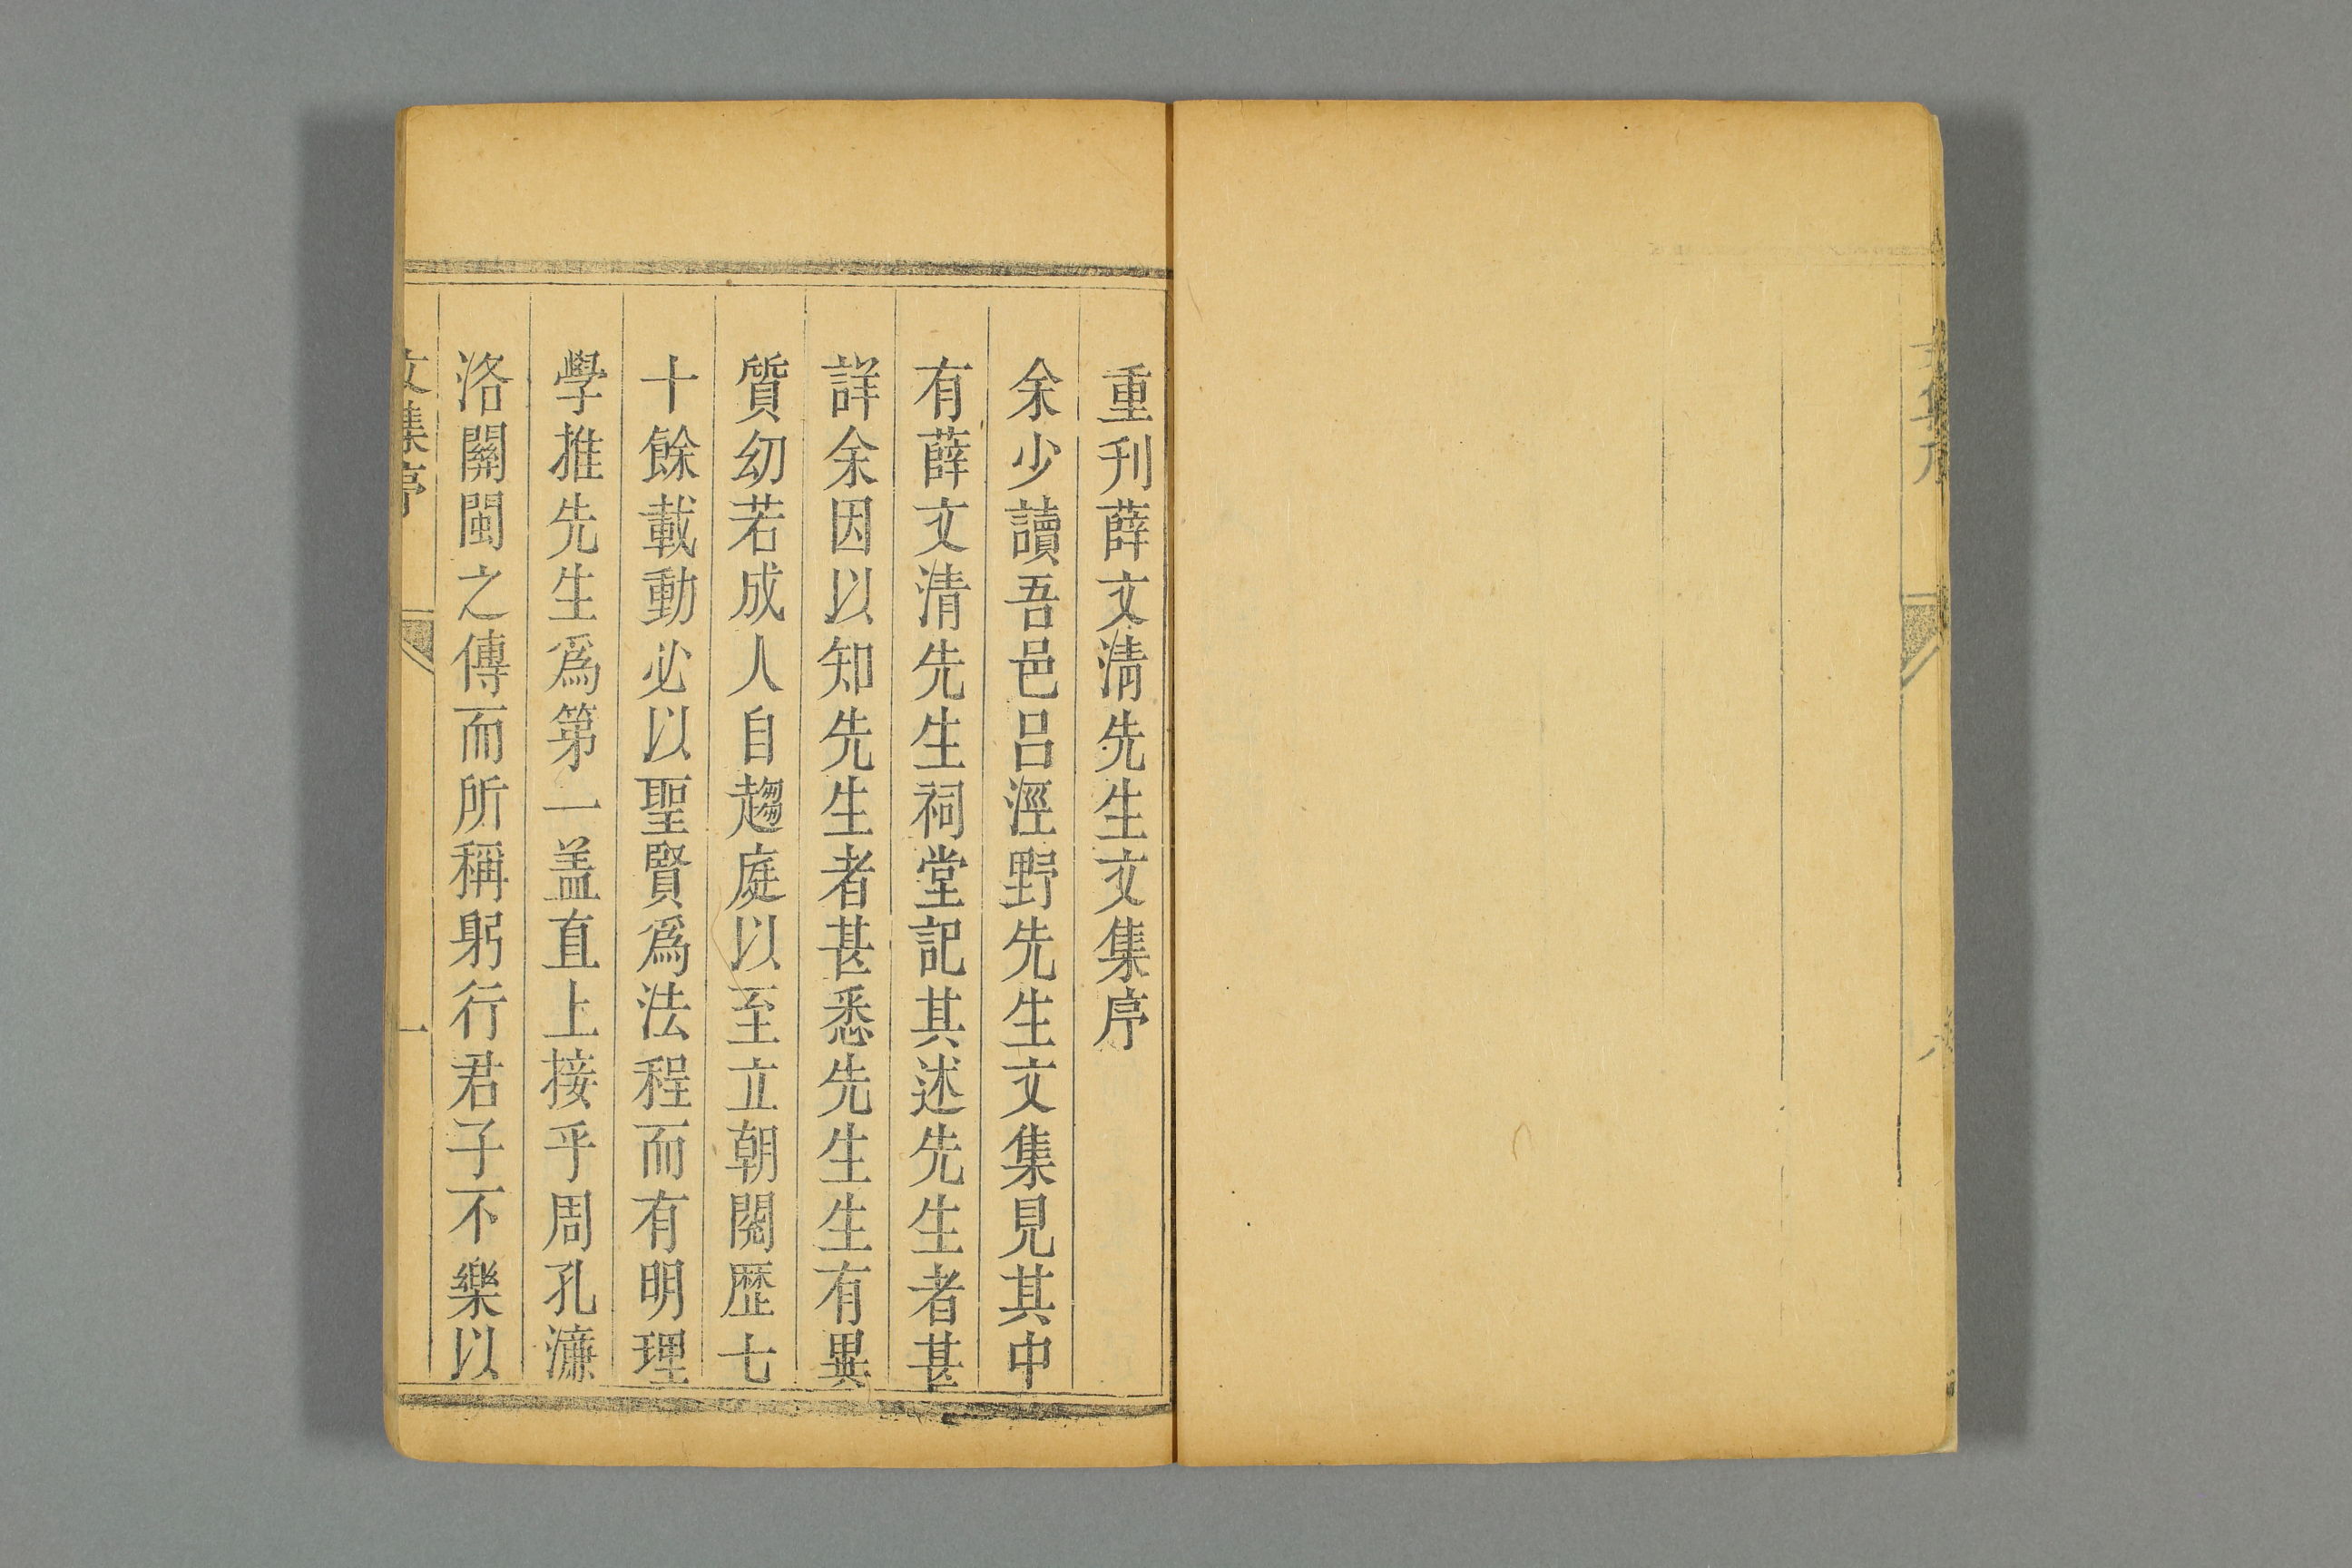 重刊薛文淸先生文集序
余少讀吾邑呂涇野先生文集見其中
有薛文清先生祠堂記其述先生者甚
詳余因以知先生者甚悉先生生有異
質幼若成人自趨庭以至立朝閱歷七
十餘載動必以聖賢爲法程而有明理
學推先生爲第一盖直上接乎周孔濂
洛關閩之傳而所稱躬行君子不樂以
文集序
一